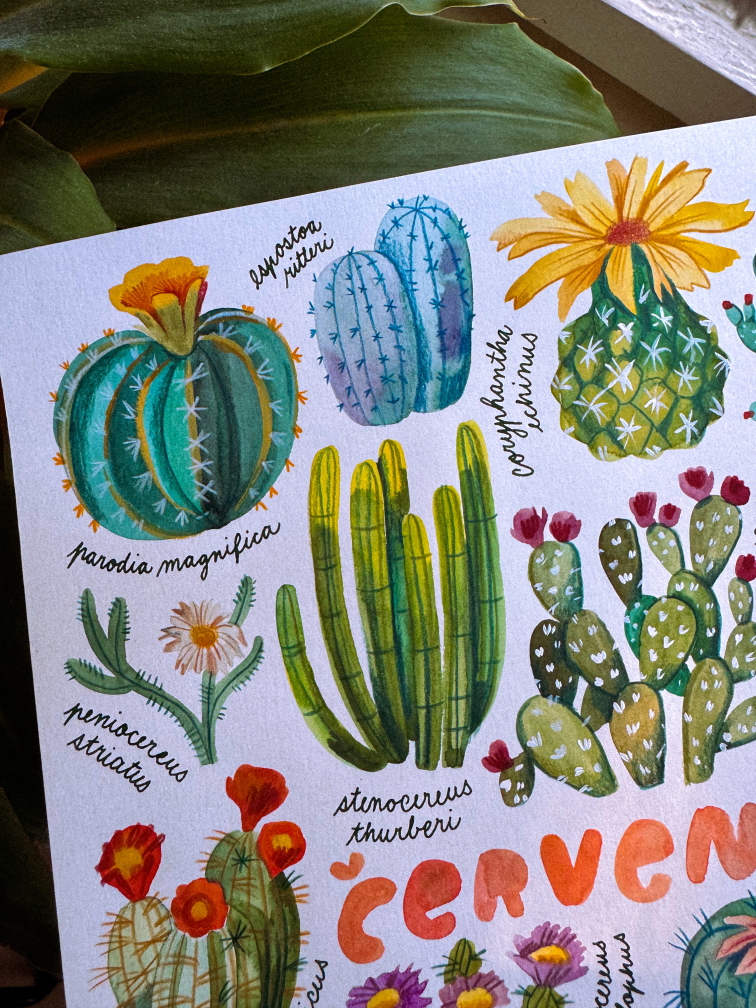 espostoa
ritteri
coryphantha
echinus
parodia magnifica
peniocereus
striatus
stenocereus
thurberi